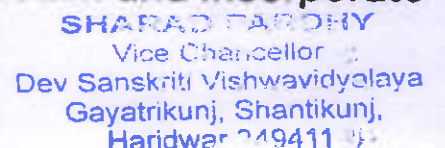 and incorporate
SHARAD PARDHY
Vice Chancellor
Dev Sanskriti Vishwavidyalaya
Gayatrikunj, Shantikunj,
Haridwar 249411